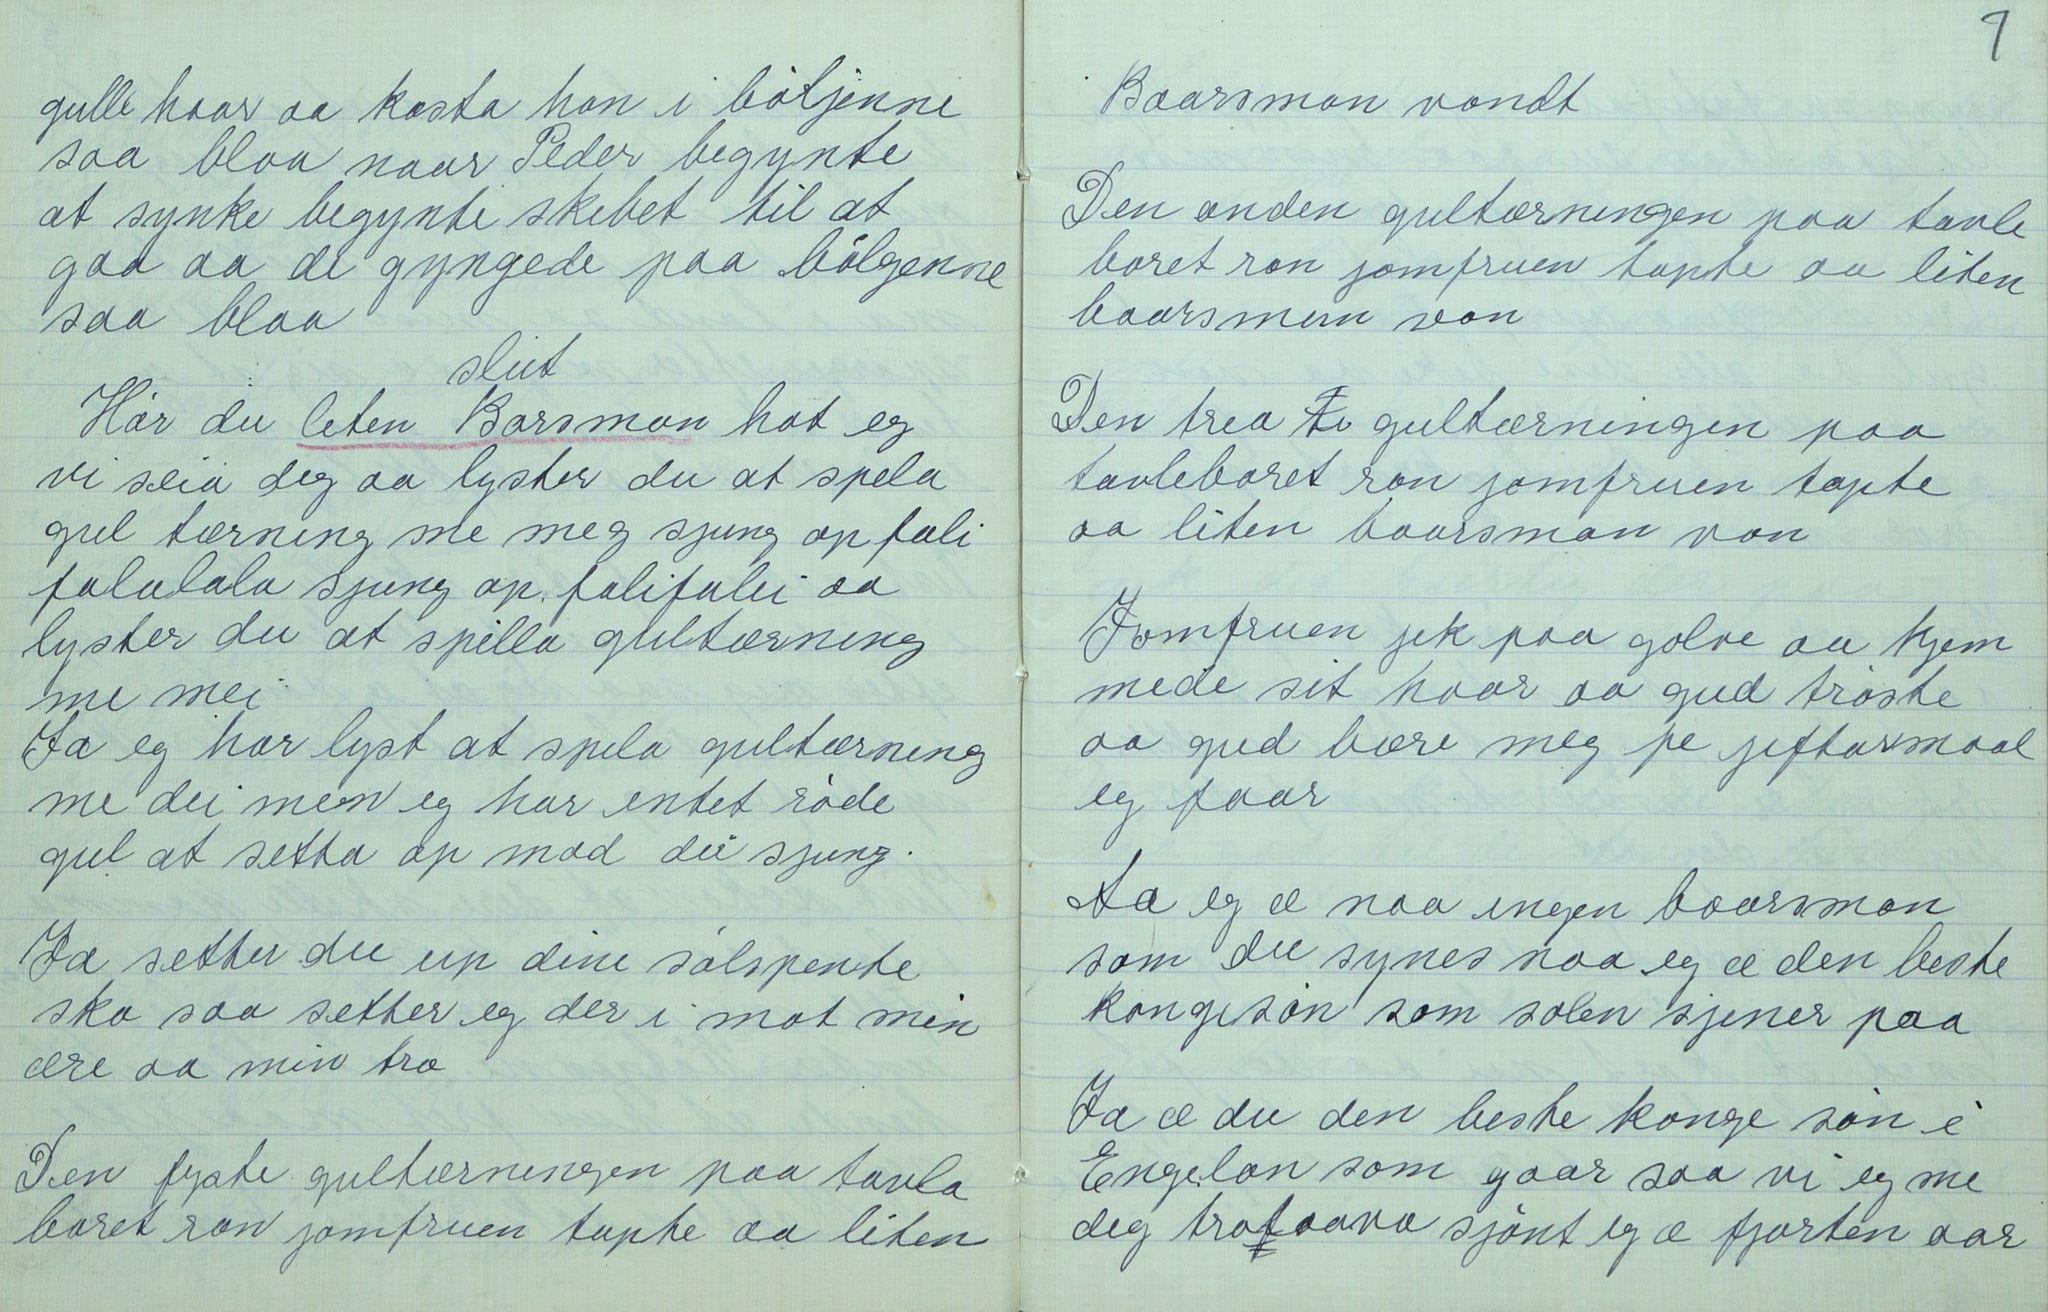 gulle haar aa kasta han i böljenne
saa blaa naar Peder begynte
at synke begynte skebet til at
gaa aa de gyngede paa bölgenne
saa blaa
slut
Hör du leten Barsman hat eg
vi seia deg aa lyster du at spela
gul tærning me meg sjung op fali
falalala sjung op falifalei aa
lyster du at spilla gultærning
me mei
Ja eg har lyst at spela gultærning
me dei men eg har entet röde
gul at setta op mod dei sjung.
Ja setter du up dine sölspente
sko saa setter eg der i mot min
ære aa min tro
Den fyste gultærningen paa tavla
boret ran jomfruen tapte aa liten
9
Baarsman vandt
Den anden gultærningen paa tavle
boret ran jomfruen tapte aa liten
baarsmann van
Den trea te gultærningen paa
tavleboret ran jomfruen tapte
aa liten baarsman van
Jomfruen jek paa golve aa kjem
mede sit haar aa gud tröste
aa gud bære meg pe jiftarmaal
eg faar
Aa eg æ naa ingen baarsman
som du synes naa eg æ den beste
konge sön som solen sjener paa
Ja æ du den beste konge sön i
Engelan som gaar saa vi eg me
deg trafaava sjönt eg æ fjorten aar